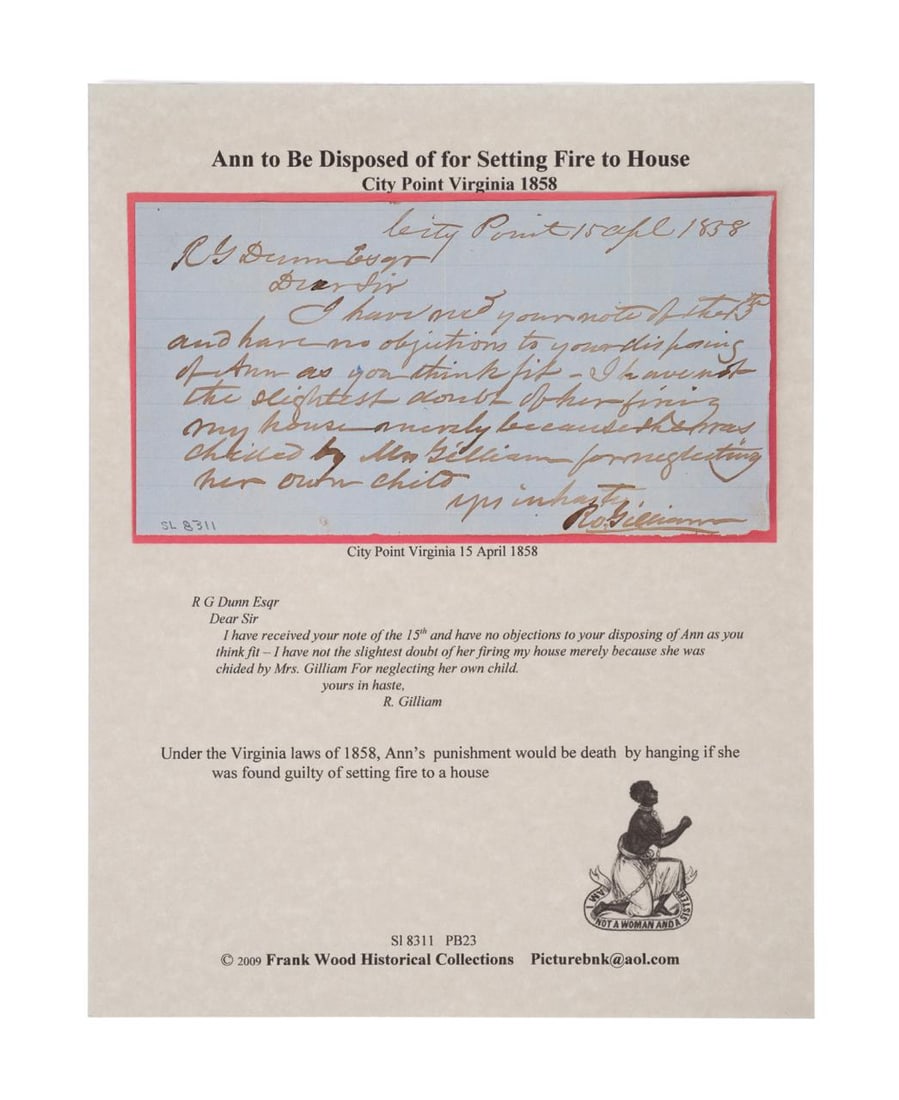 Ann to Be Disposed of for Setting Fire to House
City Point Virginia 1858
City Point 15 apl 1858
R G Dunn Esqr
Dear Sir
I have recd your note of the
and have no objections to your disposing
of Ann as you think fit – I have not
the slightest doubt of her firing
my house merely because she was
chided by Mrs Gilliam for neglecting
her own child
yrs in haste
Ro. Gilliam
SL 8311
City Point Virginia 15 April 1858
R G Dunn Esqr
Dear Sir
I have received your note of the 15th and have no objections to your disposing of Ann as you
think fit – I have not the slightest doubt of her firing my house merely because she was
chided by Mrs. Gilliam For neglecting her own child.
yours in haste,
R. Gilliam
Under the Virginia laws of 1858, Ann's punishment would be death by hanging if she
was found guilty of setting fire to a house
AM I NOT A WOMAN AND A SISTER
Sl 8311 PB23
© 2009 Frank Wood Historical Collections Picturebnk@aol.com